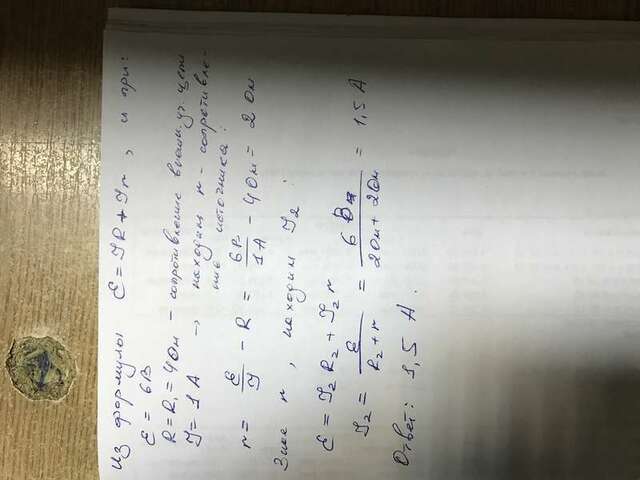 Из формулы ℰ = IR + Ir, и при:
ℰ = 6В
R = R₁ = 4Ом – сопротивление внешн. уч. цепи
I = 1А → находим r – сопротивле-
ние источника:
r = ℰ/I − R = 6В/1А − 4Ом = 2Ом
Зная r, находим I₂:
ℰ = I₂R₂ + I₂r
I₂ = ℰ/(R₂+r) = 6В/(2Ом+2Ом) = 1,5А
Ответ: 1,5 А.